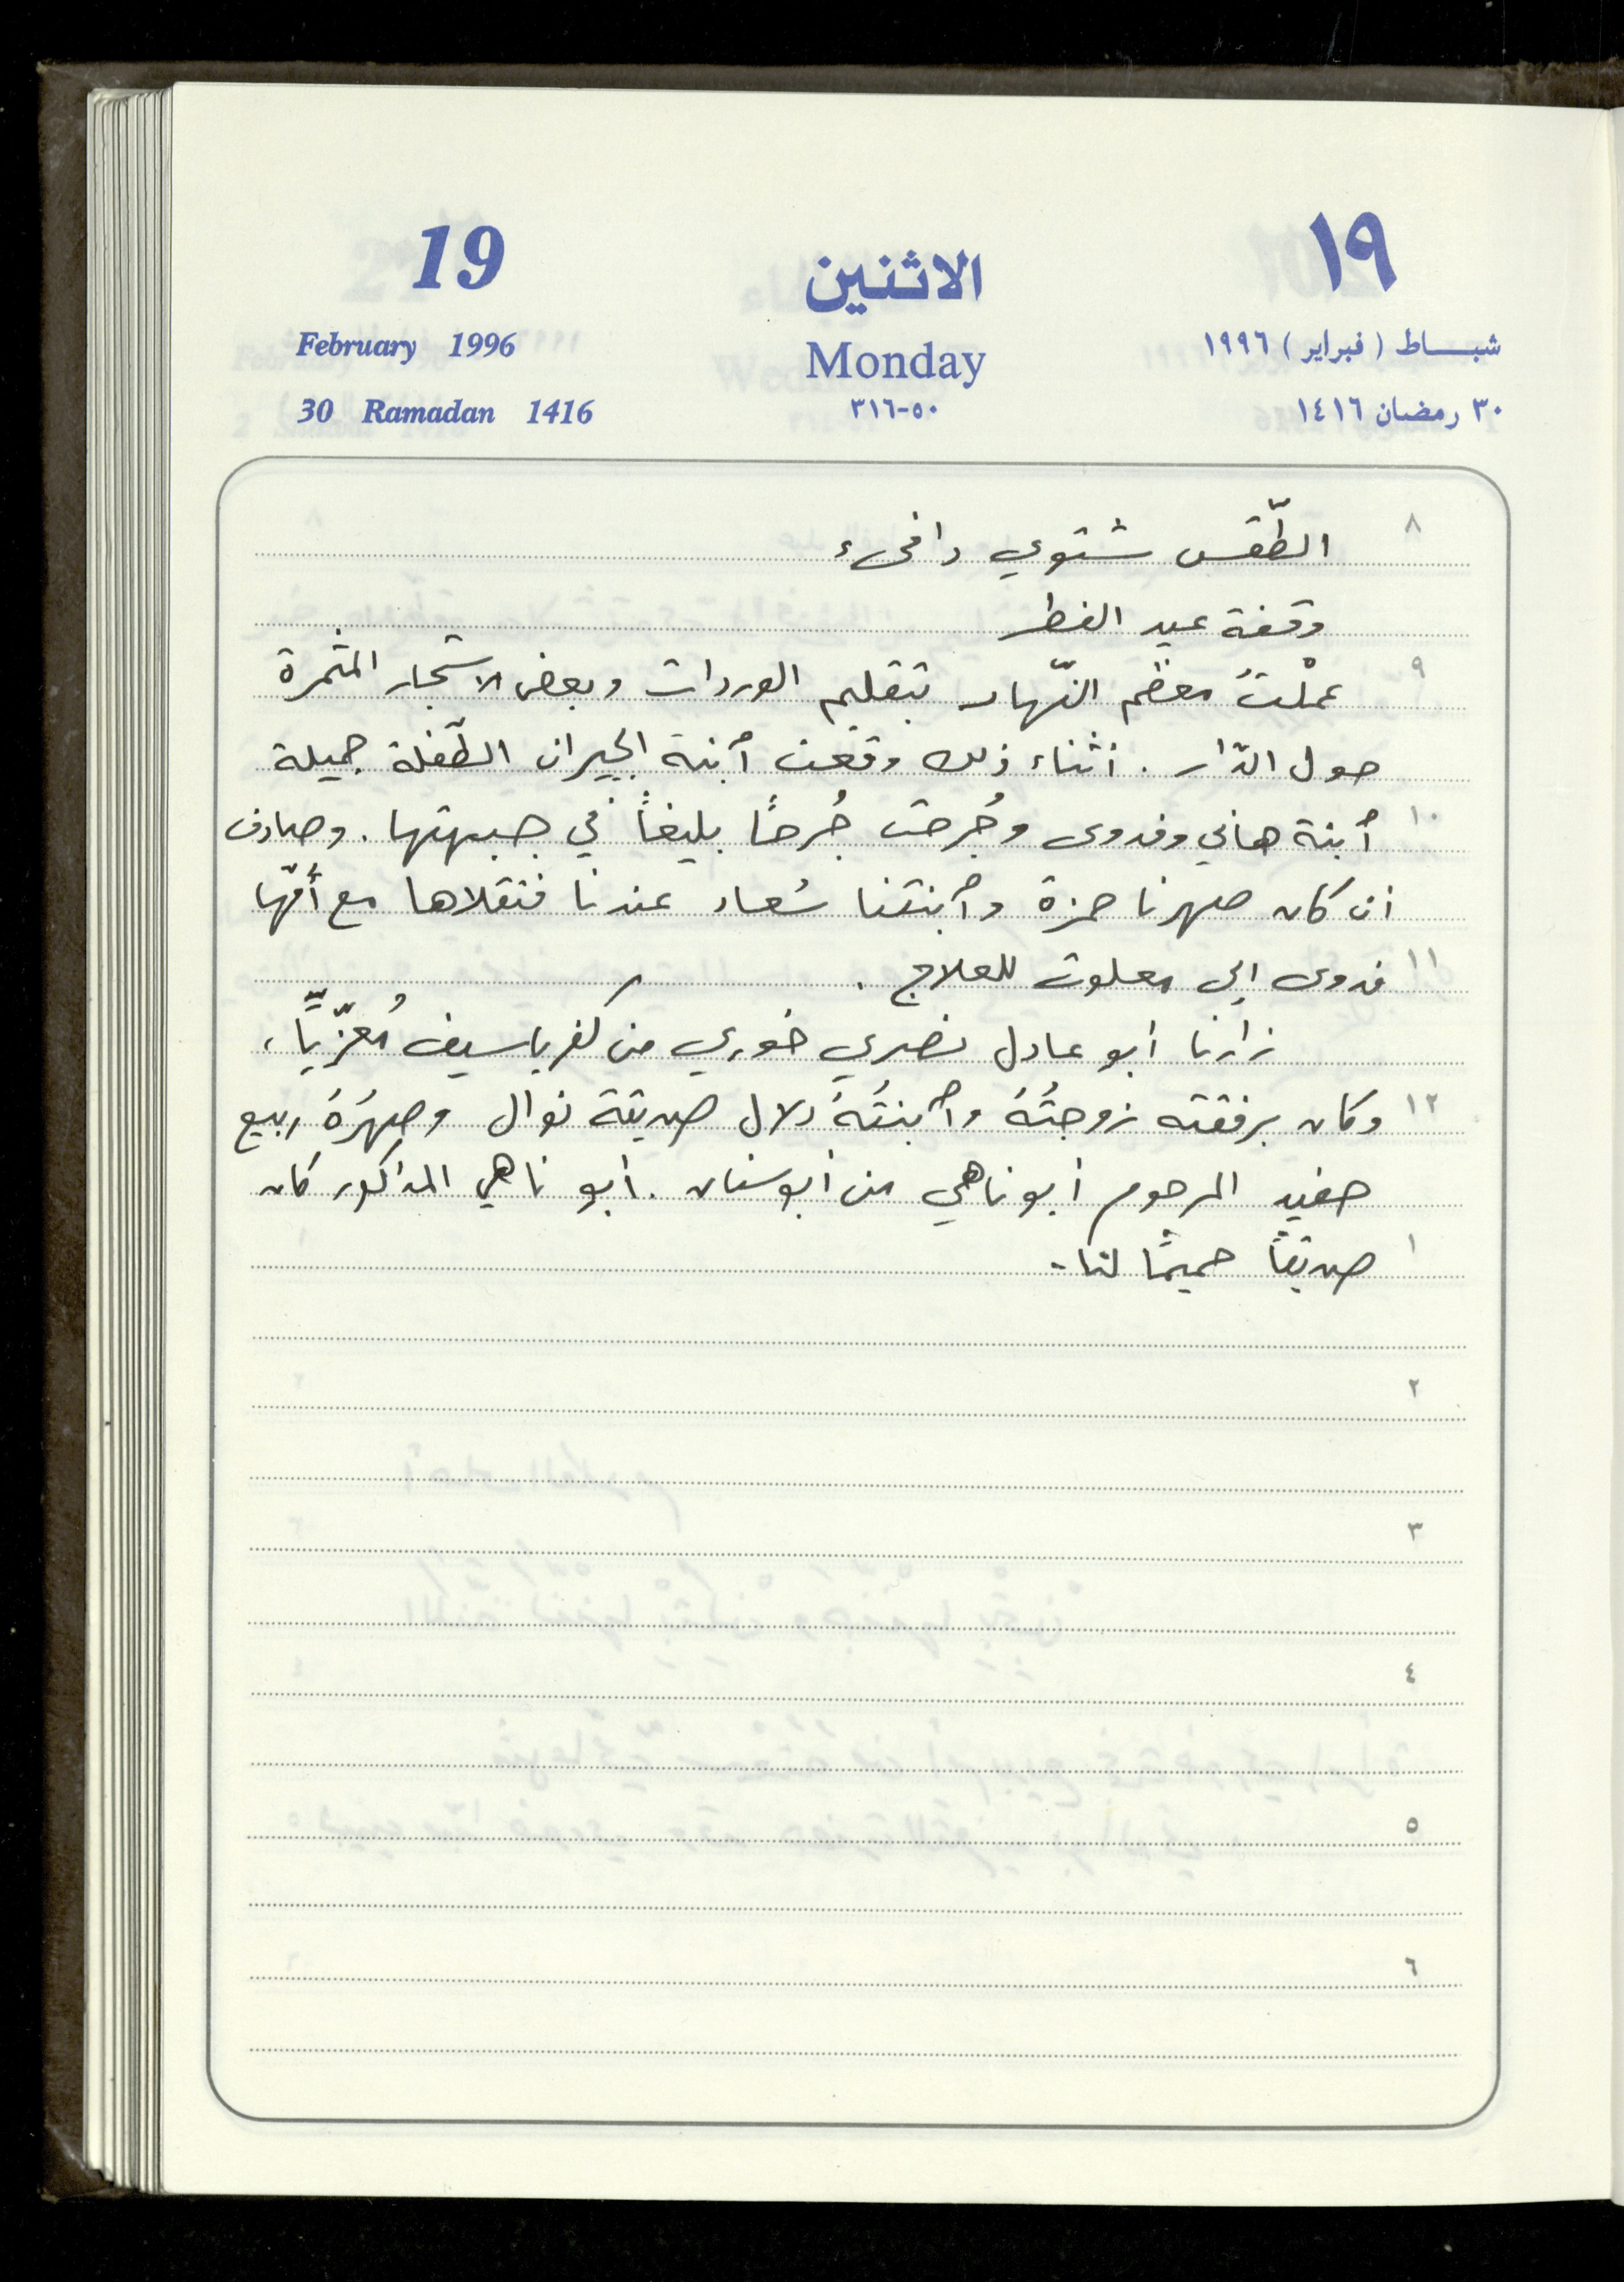 19 الاثنين ١٩
February 1996 Monday شبــــاط (فبراير) ١٩٩٦
30 Ramadan 1416 ٥٠-٣١٦ ٣٠ رمضان ١٤١٦
٨ الطّقس شتوي دافىء
وقفة عيد الفطر
٩ عملْتُ معظم النّهار بتقليم الوردات وبعض الاشجار المثمرة
حول الدّار. أثناء ذلك وقعت ٱبنة الجيران الطّفلة جميلة
١٠ ٱبنة هاني وفدوى وجُرحت جُرحًا بليغًا في جبهتها. وصادف
ان كان صهرنا حمزة وٱبنتنا سُعاد عندنا فنقلاها مع أُمّها
١١ فدوى الى معلوت للعلاج.
زارنا ابو عادل نصري خوري من كفرياسيف مُعزّيًّا،
١٢ وكان برفقته زوجتُهُ وٱبنتُهُ دلال صديقة نوال وصهرُهُ ربيع
حفيد المرحوم أبو ناهي من أبوسنان. أبو ناهي المذكور كان
١ صديقًا حميمًا لنا.
٢
٣
٤
٥
٦